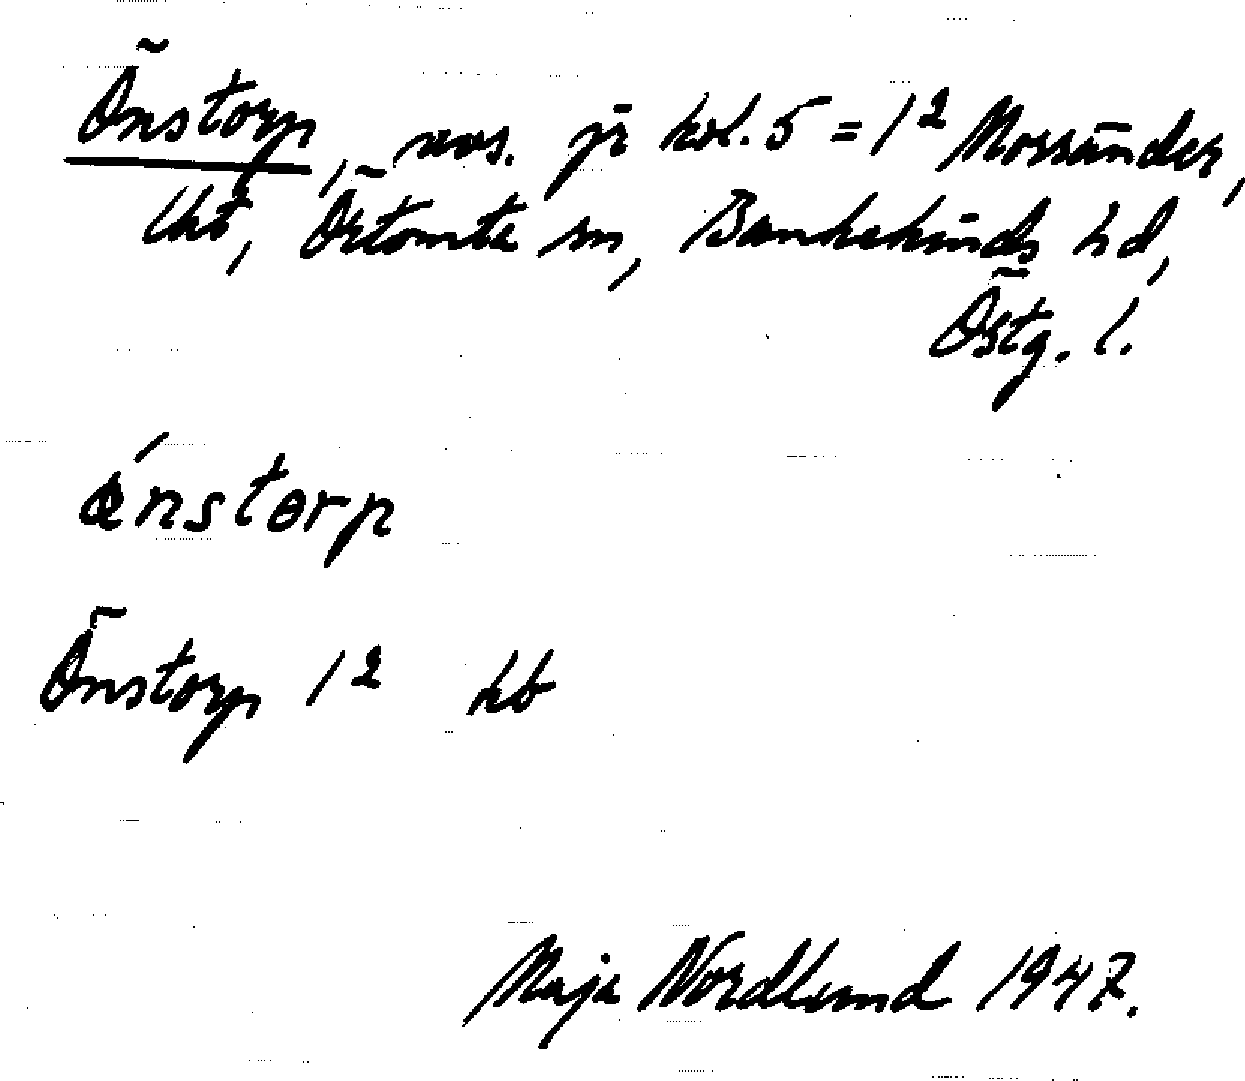 Önstorp, avs. på kbl. 5 = 1² Mossänder,
Ukb, Örtomta sn, Bankekinds hd,
Östg. l.
ǿnstɵrp
Önstorp 1² kb
Maja Nordlund 1947.